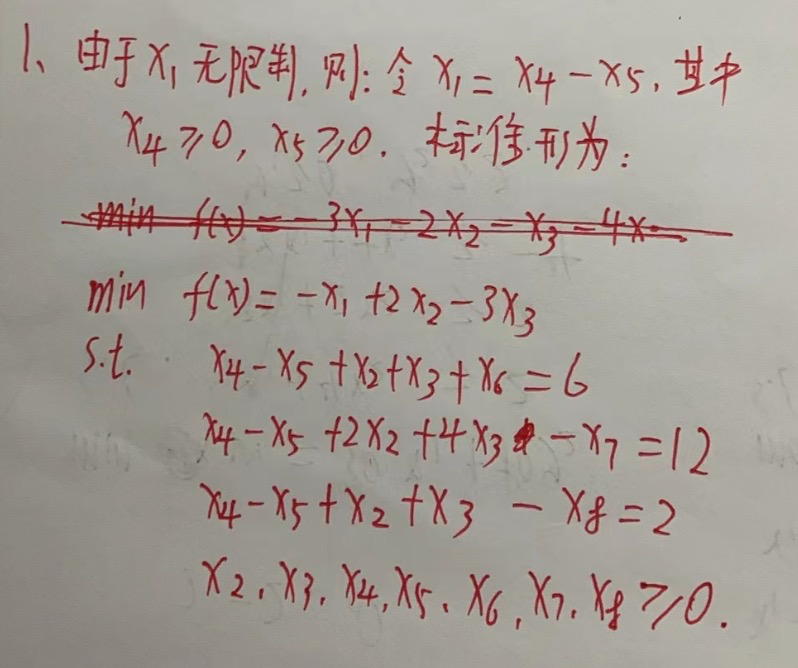 1、由于x₁无限制,则:令 x₁=x₄-x₅,其中
x₄≥0, x₅≥0. 标准形为:
min f(x)=-3x₁-2x₂-x₃-4x
min f(x)=-x₁+2x₂-3x₃
s.t. x₄-x₅+x₂+x₃+x₆=6
x₄-x₅+2x₂+4x₃-x₇=12
x₄-x₅+x₂+x₃-x₈=2
x₂,x₃,x₄,x₅,x₆,x₇,x₈≥0.